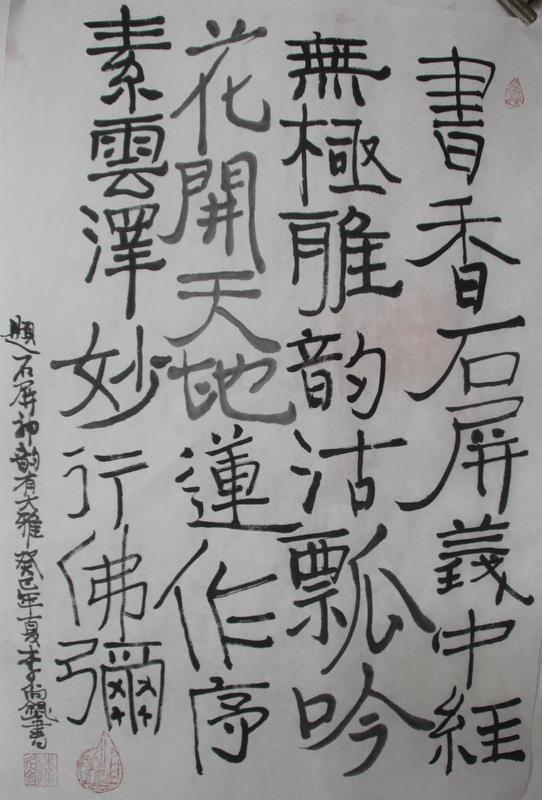 書香石屏義中經
無極雕韵沽瓢吟
花開天地蓮作序
素雲澤妙行佛彌
題石屏神韵有大雅 癸巳年夏李尚書